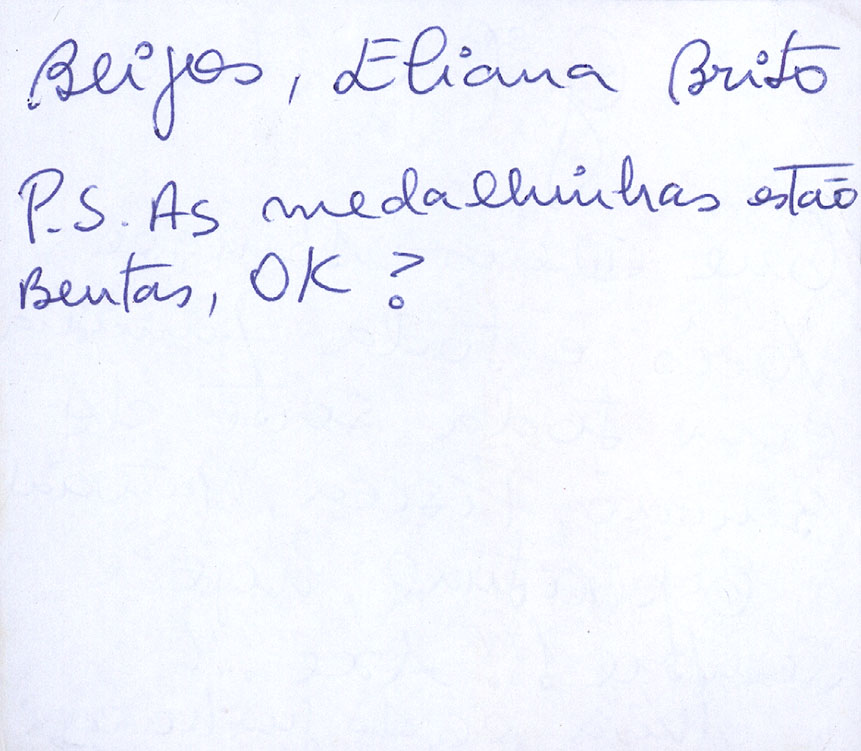 Beijos, Eliana Brito
P.S. As medalhinhas estão
Bentas, OK ?